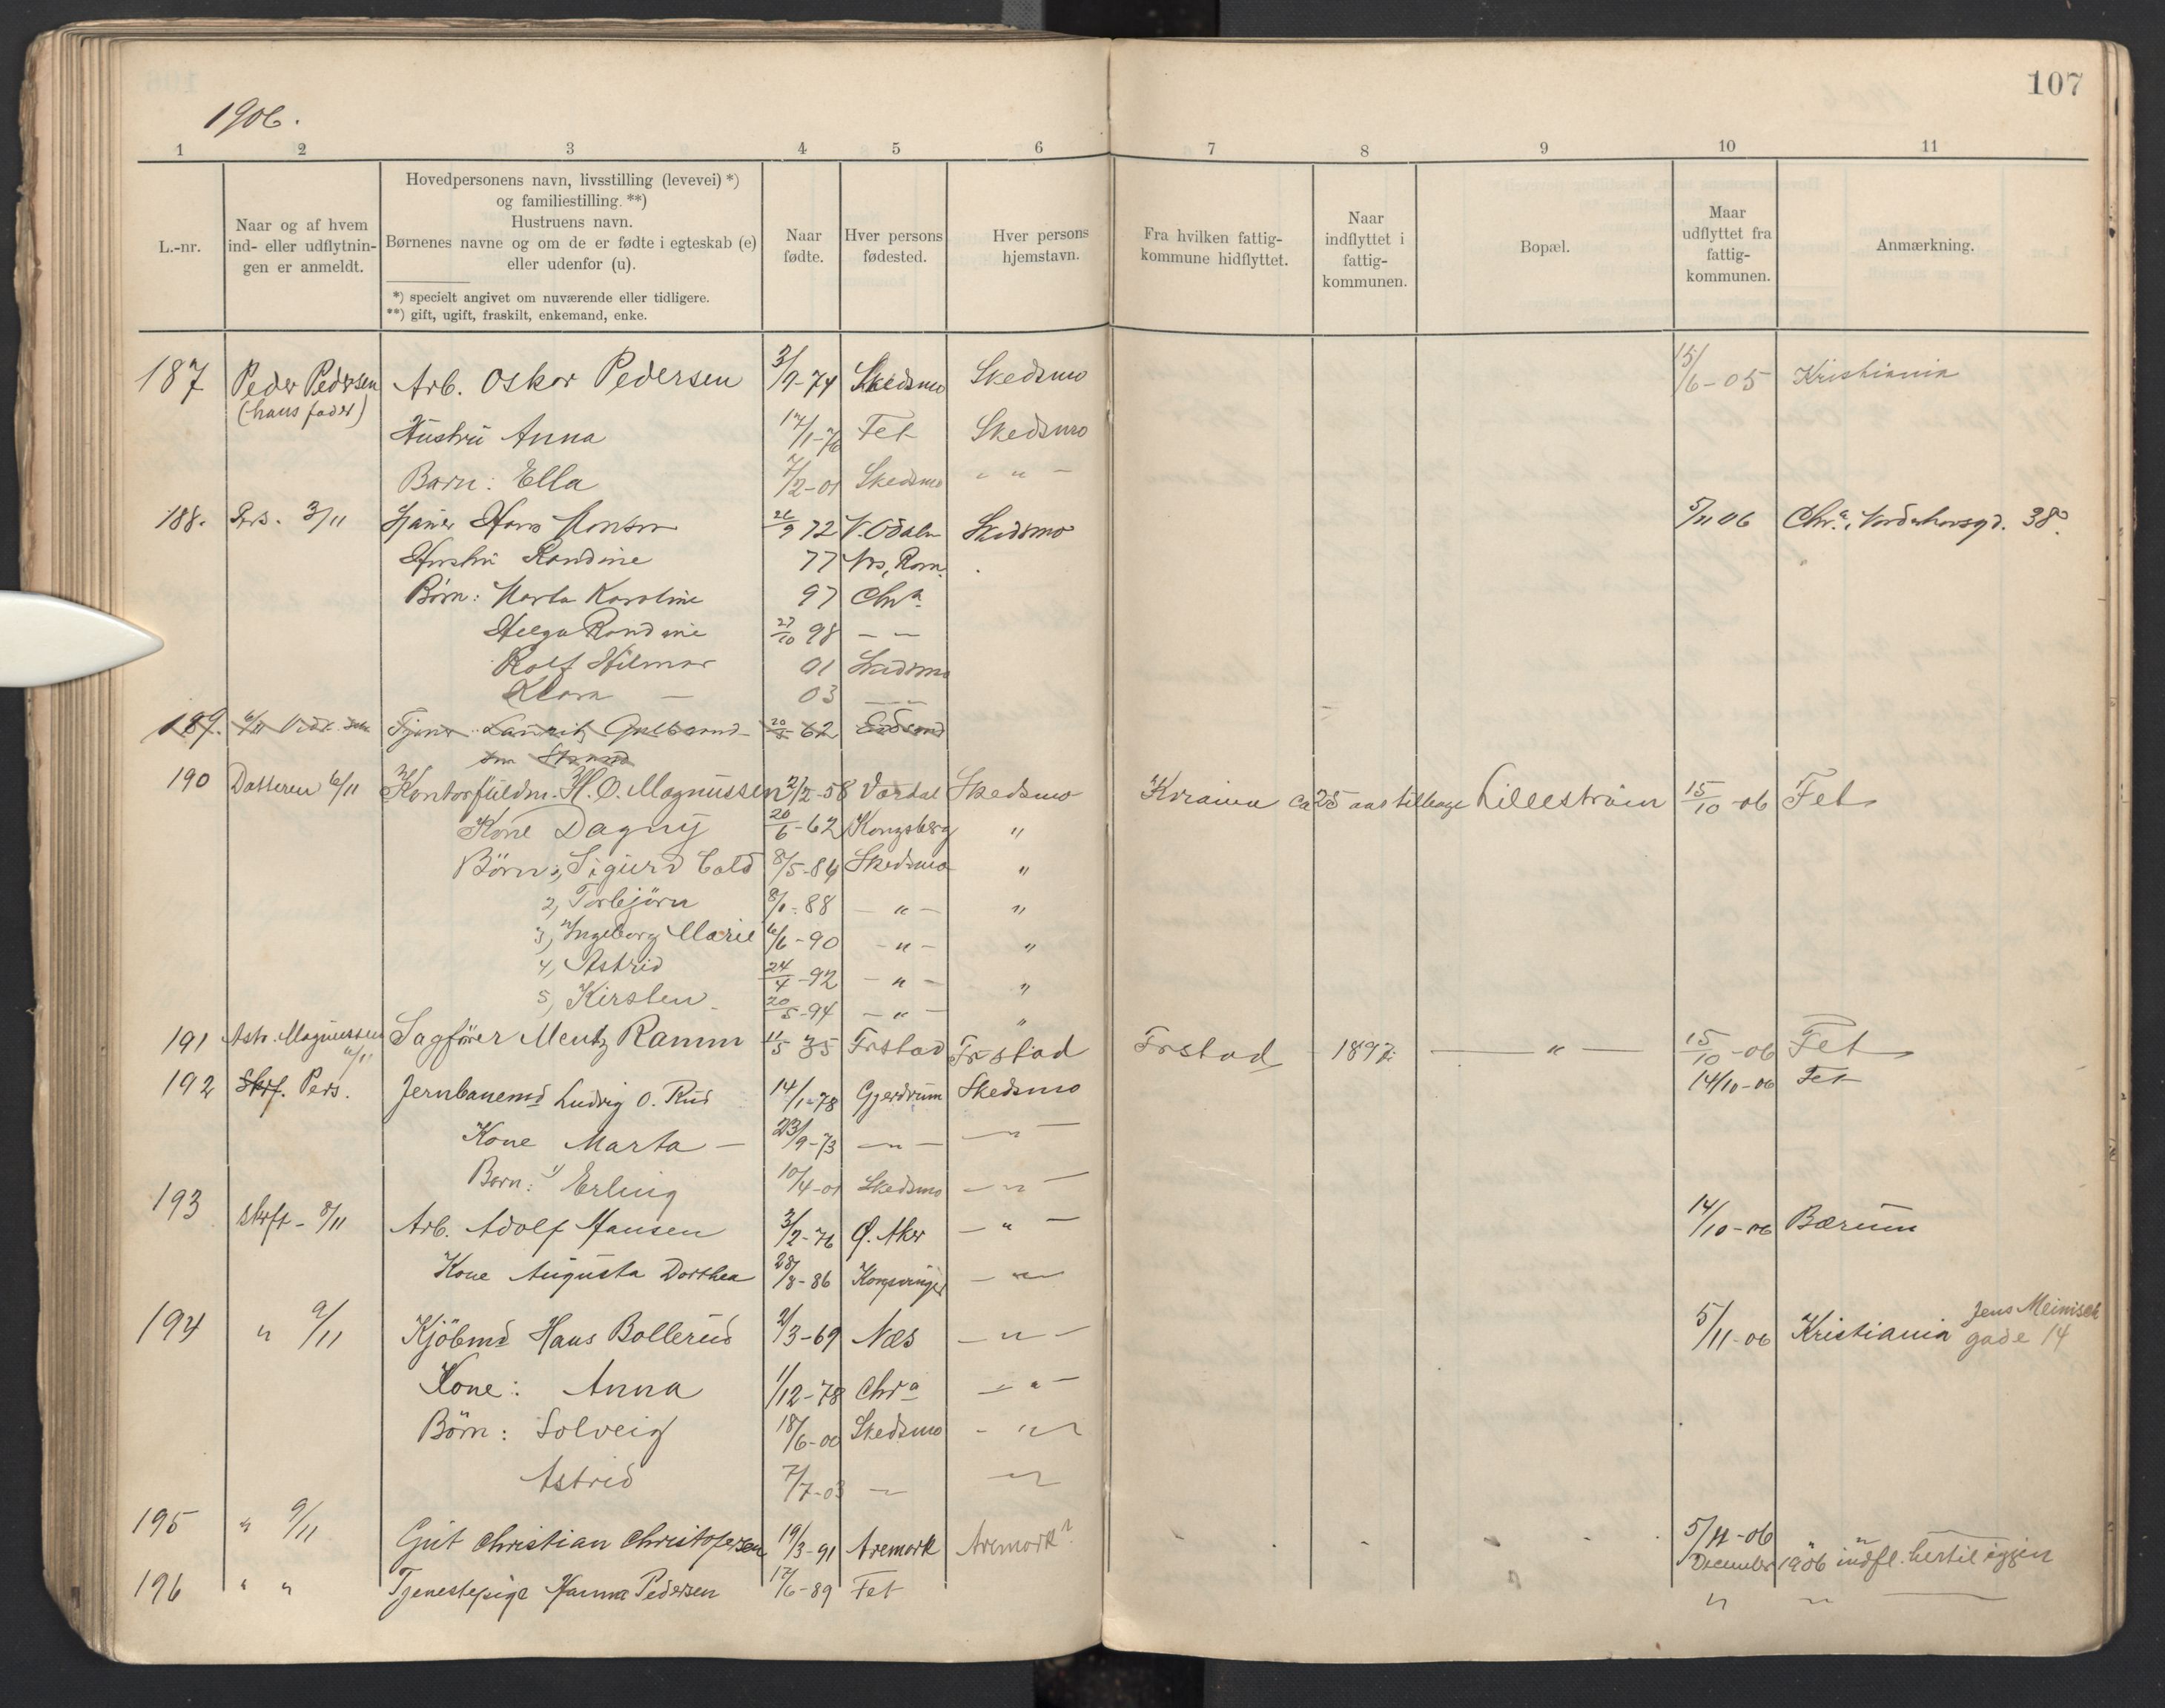 107
1906.
1 2 3 4 5 6 7 8 9 10 11
L.-nr.
Naar og af hvem
ind- eller udflytnin-
gen er anmeldt.
Hovedpersonens navn, livsstilling (levevei) *)
og familiestilling. **)
Hustruens navn.
Børnenes navne og om de er fødte i egteskab (e)
eller udenfor (u).
*) specielt angivet om nuværende eller tidligere.
**) gift, ugift, fraskilt, enkemand, enke.
Naar
fødte.
Hver persons
fødested.
Hver persons
hjemstavn.
Fra hvilken fattig-
kommune hidflyttet.
Naar
indflyttet i
fattig-
kommunen.
Bopæl.
Maar
udflyttet fra
fattig-
kommunen.
Anmærkning.
187 Peder Pedersen Arb. Oskar Pedersen 3/9-74 Skedsmo Skedsmo 15/6-05 Kristiania
(hans fader)
Hustru Anna 17/1-76 Fet Skedsmo
Barn: Ella 7/2-01 Skedsmo - " -
188. Pers. 3/11 Hans Monsen 26/9 72 V. Odalen Skedsmo 5/11 06 Chr.a, Nordahl 38
Hustru Randine 77 Nes, Rom.
Børn: Marta Karoline 97 Chr.a
Helga Randine 27/10 98 - -
Rolf Hilmar 01 Skedsmo
Klara - 03 - -
189. 6/11 Tjener Lauritz Gulbrand- 20/5 62 Eidsvold
sen Strand
190 Datteren 6/11 Kontorfuldm. H. O. Magnussen 2/2-58 Værdal Skedsmo Krania ca 25 aar tilbage Lillestrøm 15/10-06 Fet
Kone Dagny 20/6-62 Kongsberg "
Börn: 1, Sigurd Cold 8/5-84 Skedsmo "
2, Torbjörn 8/1-88 - " - "
3, Ingeborg Marie 6/6-90 - " - "
4, Astrid 24/4-92 - " - "
5, Kirsten 20/5-94 - " - "
191 Astr. Magnussen 6/11 Sagförer Mentz Ramm 11/5 35 Frstad Frstad Frstad 1897 - " - 15/10-06 Fet
192 Skrf. Pers. Jernbanemd Ludvig O. Rud 14/1-78 Gjerdrum Skedsmo 14/10-06 Fet
Kone Marta - 23/9-73 - " - - " -
Barn: 1) Erling 10/4-01 Skedsmo - " -
193 Skrft - 8/11 Arb. Adolf Hansen 3/2-76 Ø. Aker - " - 14/10-06 Bærum
Kone Augusta Dorthea 28/8-86 Kongsvinger - " -
194 " 9/11 Kjöbmd Hans Bollerud 2/3-69 Næs - " - 5/11-06 Kristiania Jens Meinisch
gade 14
Kone: Anna 1/12-78 Chr a - " -
Börn: Solveig 18/6-00 Skedsmo - " -
Astrid 7/7-03 - " - " -
195 " 9/11 Gut Christian Christofersen 19/3-91 Aremark Aremark? 5/11-06
December 1906 indfl. hertil igjen
196 " " Tjenestepige Hanna Pedersen 17/6-89 Fet " "